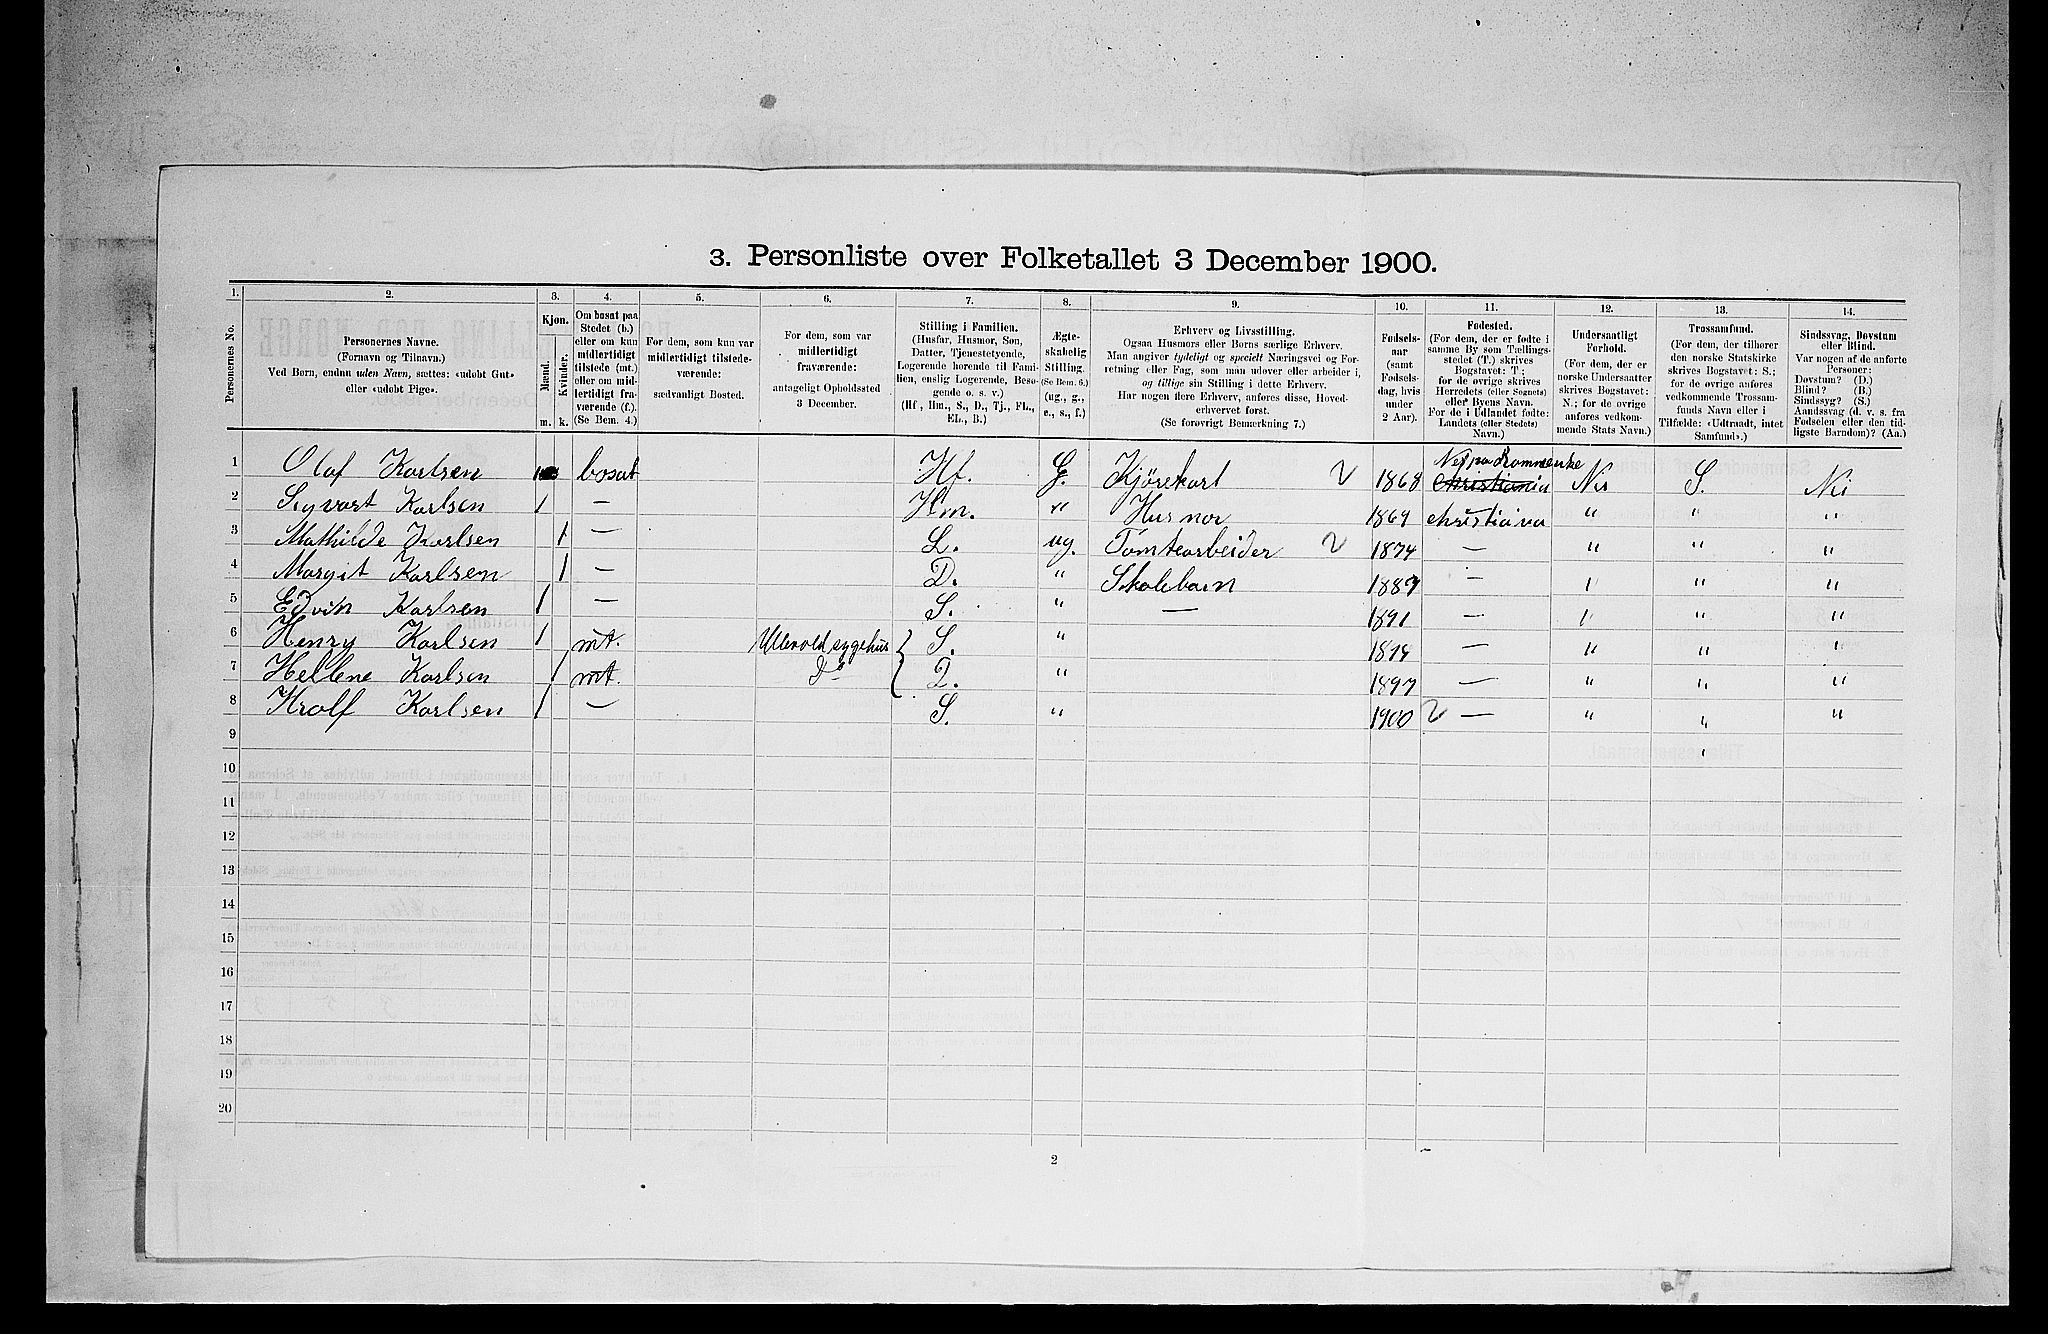 3. Personliste over Folketallet 3 December 1900.
1. 2. 3. 4. 5. 6. 7. 8. 9. 10. 11. 12. 13. 14.
Personernes No.
Personernes Navne.
(Fornavn og Tilnavn.)
Ved Børn, endnu uden Navn, sættes: «udøbt Gut»
eller «udøbt Pige».
Kjøn.
Mænd. Kvinder.
m. k.
Om bosat paa
Stedet (b.)
eller om kun
midlertidigt
tilstede (mt.)
eller om mid-
lertidigt fra-
værende (f.).
(Se Bem. 4.)
For dem, som kun var
midlertidigt tilstede-
værende:
sædvanligt Bosted.
For dem, som var
midlertidigt
fraværende:
antageligt Opholdssted
3 December.
Stilling i Familien.
(Husfar, Husmor, Søn,
Datter, Tjenestetyende,
Logerende hørende til Fami-
lien, enslig Logerende, Besø-
gende o. s. v.)
(Hf., Hm., S., D., Tj., FL.,
EL., B.)
Ægte-
skabelig
Stilling.
(Se Bem. 6.)
(ug., g.,
e., s., f.)
Erhverv og Livsstilling.
Ogsaa Husmors eller Børns særlige Erhverv.
Man angiver tydeligt og specielt Næringsvei og For-
retning eller Fag, som man udøver eller arbeider i,
og tillige sin Stilling i dette Erhverv.
Har nogen flere Erhverv, anføres disse, Hoved-
erhvervet først.
(Se forøvrigt Bemærkning 7.)
Fødsels-
aar
(samt
Fødsels-
dag, hvis
under
2 Aar).
Fødested.
(For dem, der er fødte i
samme By som Tællings-
stedet (T.) skrives
Bogstavet: T;
for de øvrige skrives
Herredets (eller Sognets)
eller Byens Navn.
For de i Udlandet fødte:
Landets (eller Stedets)
Navn.)
Undersaatligt
Forhold.
(For dem, der er
norske Undersaatter
skrives Bogstavet:
N.; for de øvrige
anføres vedkom-
mende Stats Navn.)
Trossamfund.
(For dem, der tilhører
den norske Statskirke
skrives Bogstavet: S.;
for de øvrige anføres
vedkommende Trossam-
funds Navn eller i
Tilfælde: «Udtraadt, intet
Samfund».)
Sindssvag, Døvstum
eller Blind.
Var nogen af de anførte
Personer:
Døvstum? (D.)
Blind? (B.)
Sindssyg? (S.)
Aandssvag (d. v. s. fra
Fødselen eller den tid-
ligste Barndom)? (Aa.)
1 Olaf Karlsen 1 bosat Hf. G. Kjörekarl 1868 Christiania S. Nei
2 Sigvart Karlsen 1 — Hm. " Husmor 1869 christiania " " "
3 Mathilde Karlsen 1 — L. ug. Tomtearbeider 1874 — " " "
4 Margit Karlsen 1 — D. " Skolebarn 1889 — " " "
5 Edvin Karlsen 1 — S. " — 1891 — " " "
6 Henry Karlsen 1 mt. Ullevold sygehus S. " — " " "
7 Hellene Karlsen 1 mt. Do D. " 1897 — " " "
8 Hrolf Karlsen 1 — S. " 1900 — " " "
9
10
11
12
13
14
15
16
17
18
19
20
2